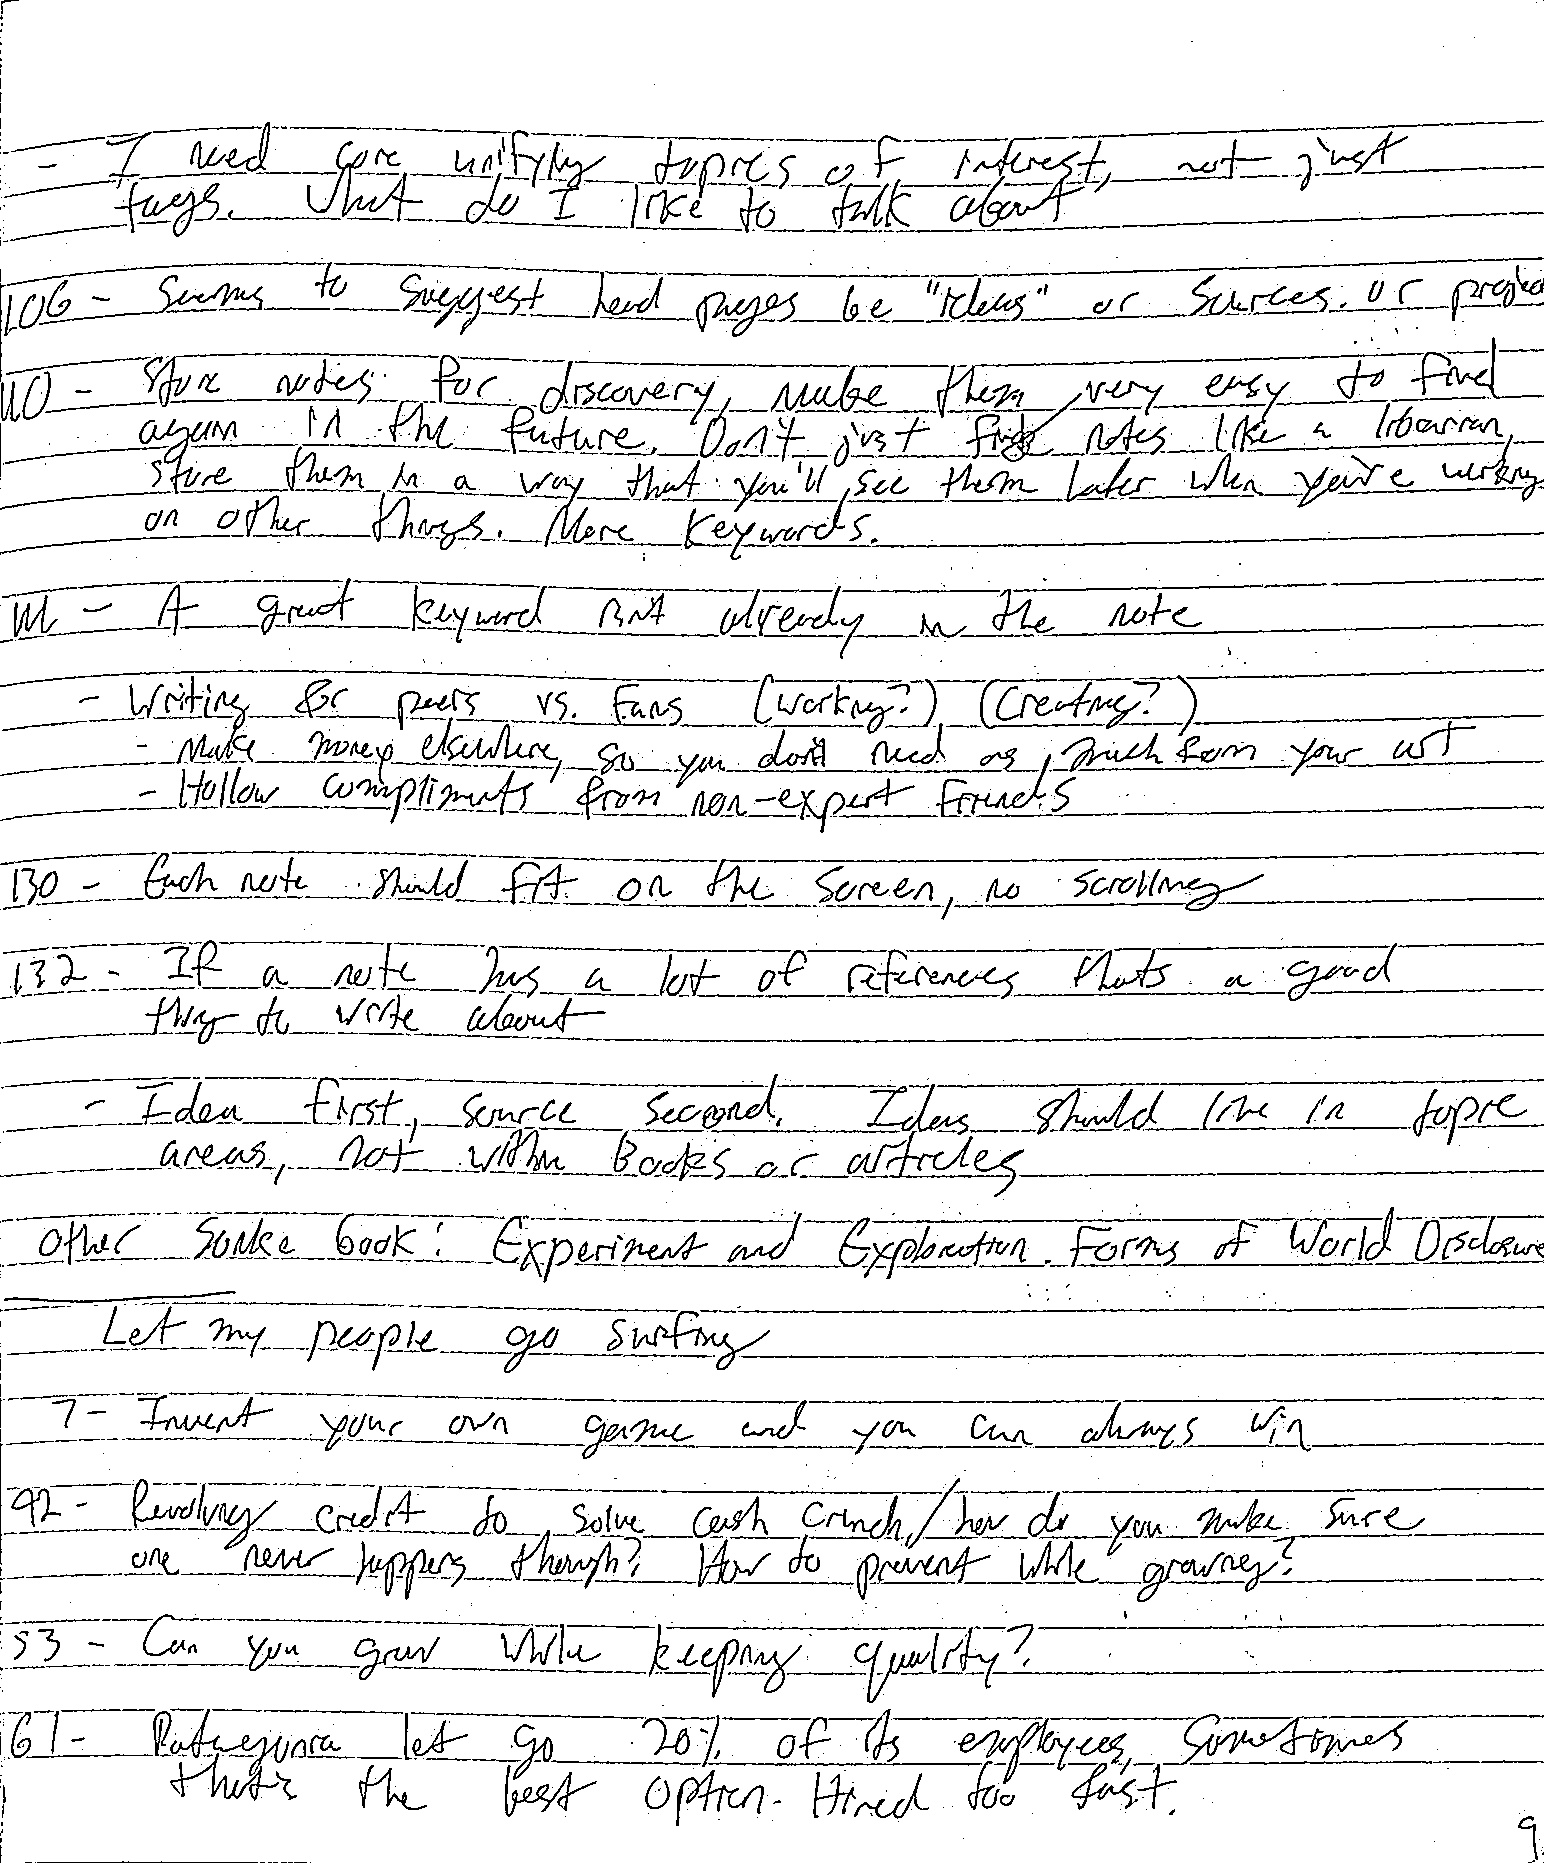 - I need core unifying topics of interest, not just
tags. What do I like to talk about
106 - Seems to suggest head pages be "ideas" or sources. or projec
110 - Store notes for discovery, make them very easy to find
again in the future. Don't just file notes like a libarian,
store them in a way that you'll see them later when you're working
on other things. More keywords.
111 - A great keyword isnt already in the note
- Writing for peers vs. Fans (working?) (Creating?)
- Make money elsewhere, so you don't need as much from your art
- Hollow compliments from non-expert friends
130 - Each note should fit on the screen, no scrolling
132 - If a note has a lot of references thats a good
thing to write about
- Idea first, source second. Ideas should live in topic
areas, not within Books or articles
Other book: Experiment and Exploration. Forms of World Disclosure
Let my people go surfing
7 - Invent your own game and you can always win
42 - Revolving credit to solve cash crunch/how do you make sure
one never happens though? How to prevent while growing?
53 - Can you grow while keeping quality?
61 - Patagonia let go 20% of its employees, Sometimes
that's the best option. Hired too fast.
9